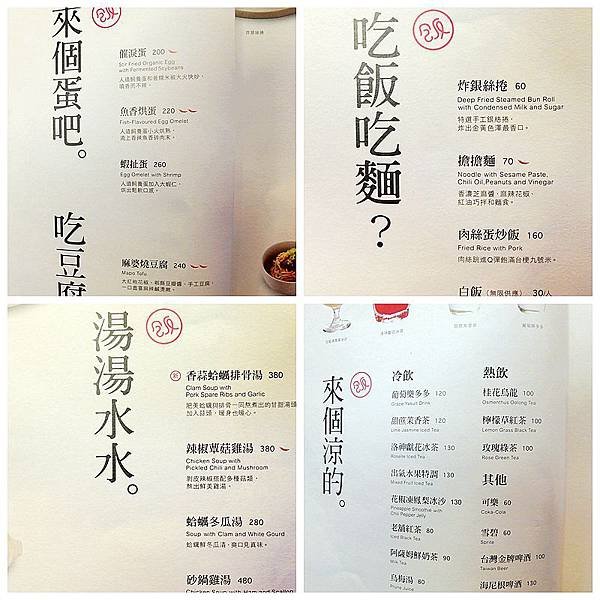 來個蛋吧。
催淚蛋 200
Stir Fried Organic Egg
with Fermented Soybeans
魚香烘蛋 220
Fish-Flavoured Egg Omelet
蝦扯蛋 260
Egg Omelet with Shrimp
吃豆腐
麻婆燒豆腐 240
Mapo Tofu
吃飯吃麵？
炸銀絲捲 60
Deep Fried Steamed Bun Roll
with Condensed Milk and Sugar
特選手工銀絲捲，
炸出金黃色澤最香口。
擔擔麵 70
Noodle with Sesame Paste,
Chili Oil,Peanuts and Vinegar
香濃芝麻醬、麻辣花椒、
紅油巧拌和麵食。
肉絲蛋炒飯 160
Fried Rice with Pork
肉絲跳進Q彈飽滿台梗九號米。
白飯（無限供應） 30/人
湯湯水水。
香蒜蛤蠣排骨湯 380
Clam Soup with
Pork Spare Ribs and Garlic
把美蛤蠣與排骨一同熬煮出的甘甜湯頭
加入蒜頭，暖身也暖心。
辣椒蕈菇雞湯 380
Chicken Soup with
Pickled Chili and Mushroom
剝皮辣椒搭配多種菇類，
熬出鮮美雞湯。
蛤蠣冬瓜湯 280
Soup with Clam and White Gourd
蛤蠣鮮冬瓜清，爽口見真味。
砂鍋雞湯 480
Chicken Soup with Ham and Scallop
來個涼的。
冷飲
葡萄柚多多 120
Grape Yakult Drink
甜蔗茉香茶 120
Lime Jasmine Iced Tea
洛神獻花冰茶 130
Roselle Iced Tea
出氣水果特調 130
Mixed Fruit Iced Tea
花椒凍鳳梨冰沙 130
Pineapple Smoothie with
Chili Pepper Jelly
老舖紅茶 80
Iced Black Tea
阿薩姆鮮奶茶 90
Milk Tea
烏梅湯 80
Prune Juice
熱飲
桂花烏龍 100
Osmenthus Oolong Tea
檸檬草紅茶 100
Lemon Grass Black Tea
玫瑰綠茶 100
Rose Green Tea
其他
可樂 60
Coka-Cola
雪碧 60
Sprite
台灣金牌啤酒 100
Taiwan Beer
海尼根啤酒 130